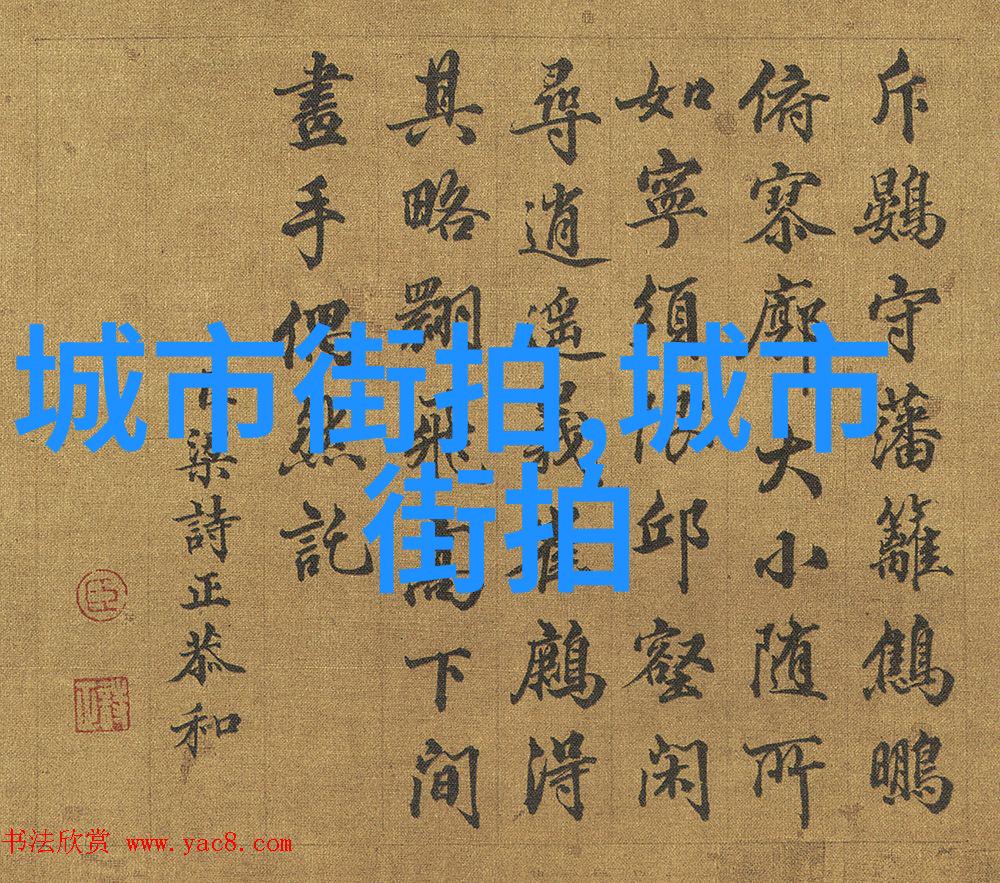 城市街拍,城市
街拍
斥鷃守藩籬鷦鵬
俯寥廓大小随所
如寧須限邱壑闲
尋逍遥義得
其略翾飛高下間
畫手偶然託
臣梁詩正恭和
臣
书法欣赏 www.yac8.com